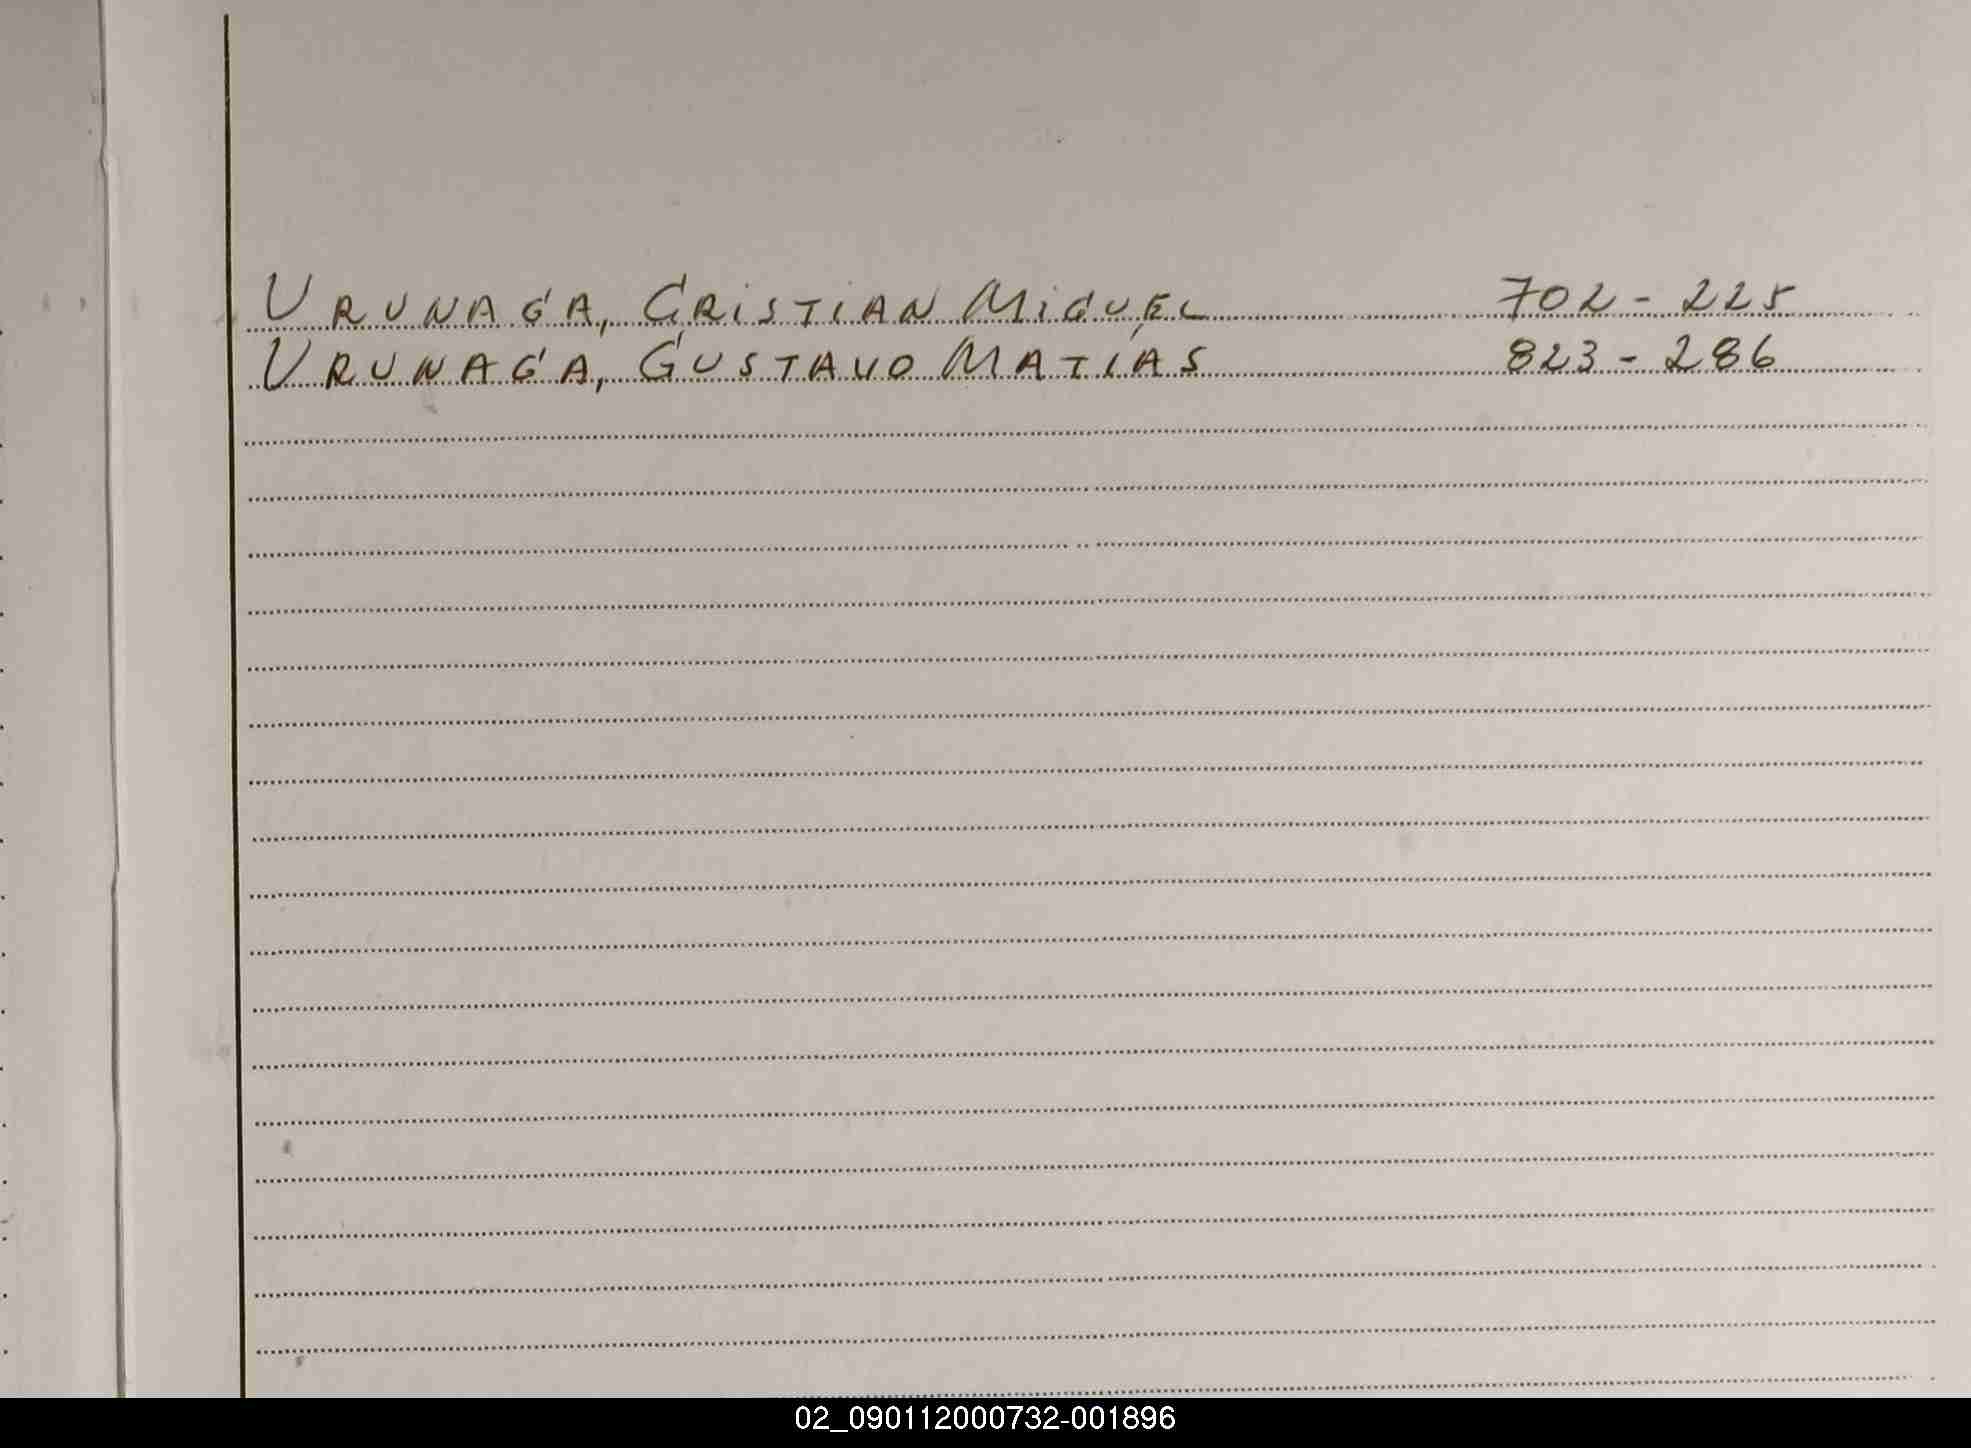 URUNAGA, CRISTIAN MIGUEL 702 - 225
URUNAGA, GUSTAVO MATIAS 823 - 286
02_090112000732-001896